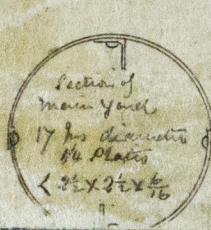 Section of
Main Yard
17 Ins diameter
1/4 Plates
< 2½ x 2½ x 6/16